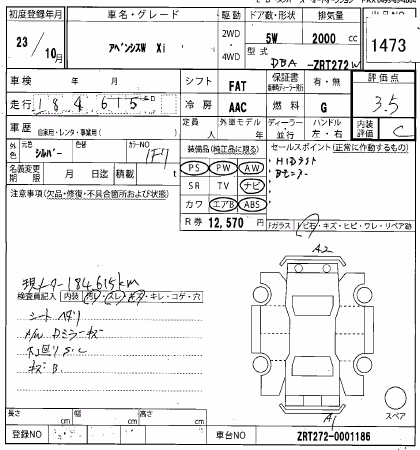 初度登録年月 車名・グレード 駆動 ドア数・形状 排気量
23/10月 アベンシスW Xi 2WD・4WD 5W 2000 cc 1473
型式 DBA-ZRT272W
車検 年 月 シフト FAT 保証書 有・無 評価点 3.5
走行 184615 冷房 AAC 燃料 G
車歴 自家用・レンタ・事業用( ) 定員 人 外車モデル 年 ディーラー・並行 ハンドル 左・右 内装評価 C
外色 元色 シルバー 色替 カラーNO 1F7
装備品(純正品に限る) セールスポイント(正常に作動するもの)
名義変更期限 月 日迄 積載 t
PS PW AW ・HIDライト
SR TV ナビ ・Bモニター
カワ エアB ABS
注意事項(欠品・修復・不具合箇所および状態)
R券 12,570 円 Fガラス ビ石・キズ・ヒビ・ワレ・リペア跡
A2
現メーター184615km
検査員記入 内装 汚レ・スレ・キズ・キレ・コゲ・穴
シートヘタリ
A/W Dミラーキズ
下回りS.C
キズB.
スペア
A1
長さ cm 幅 cm 高さ cm
登録NO 車台NO ZRT272-0001186